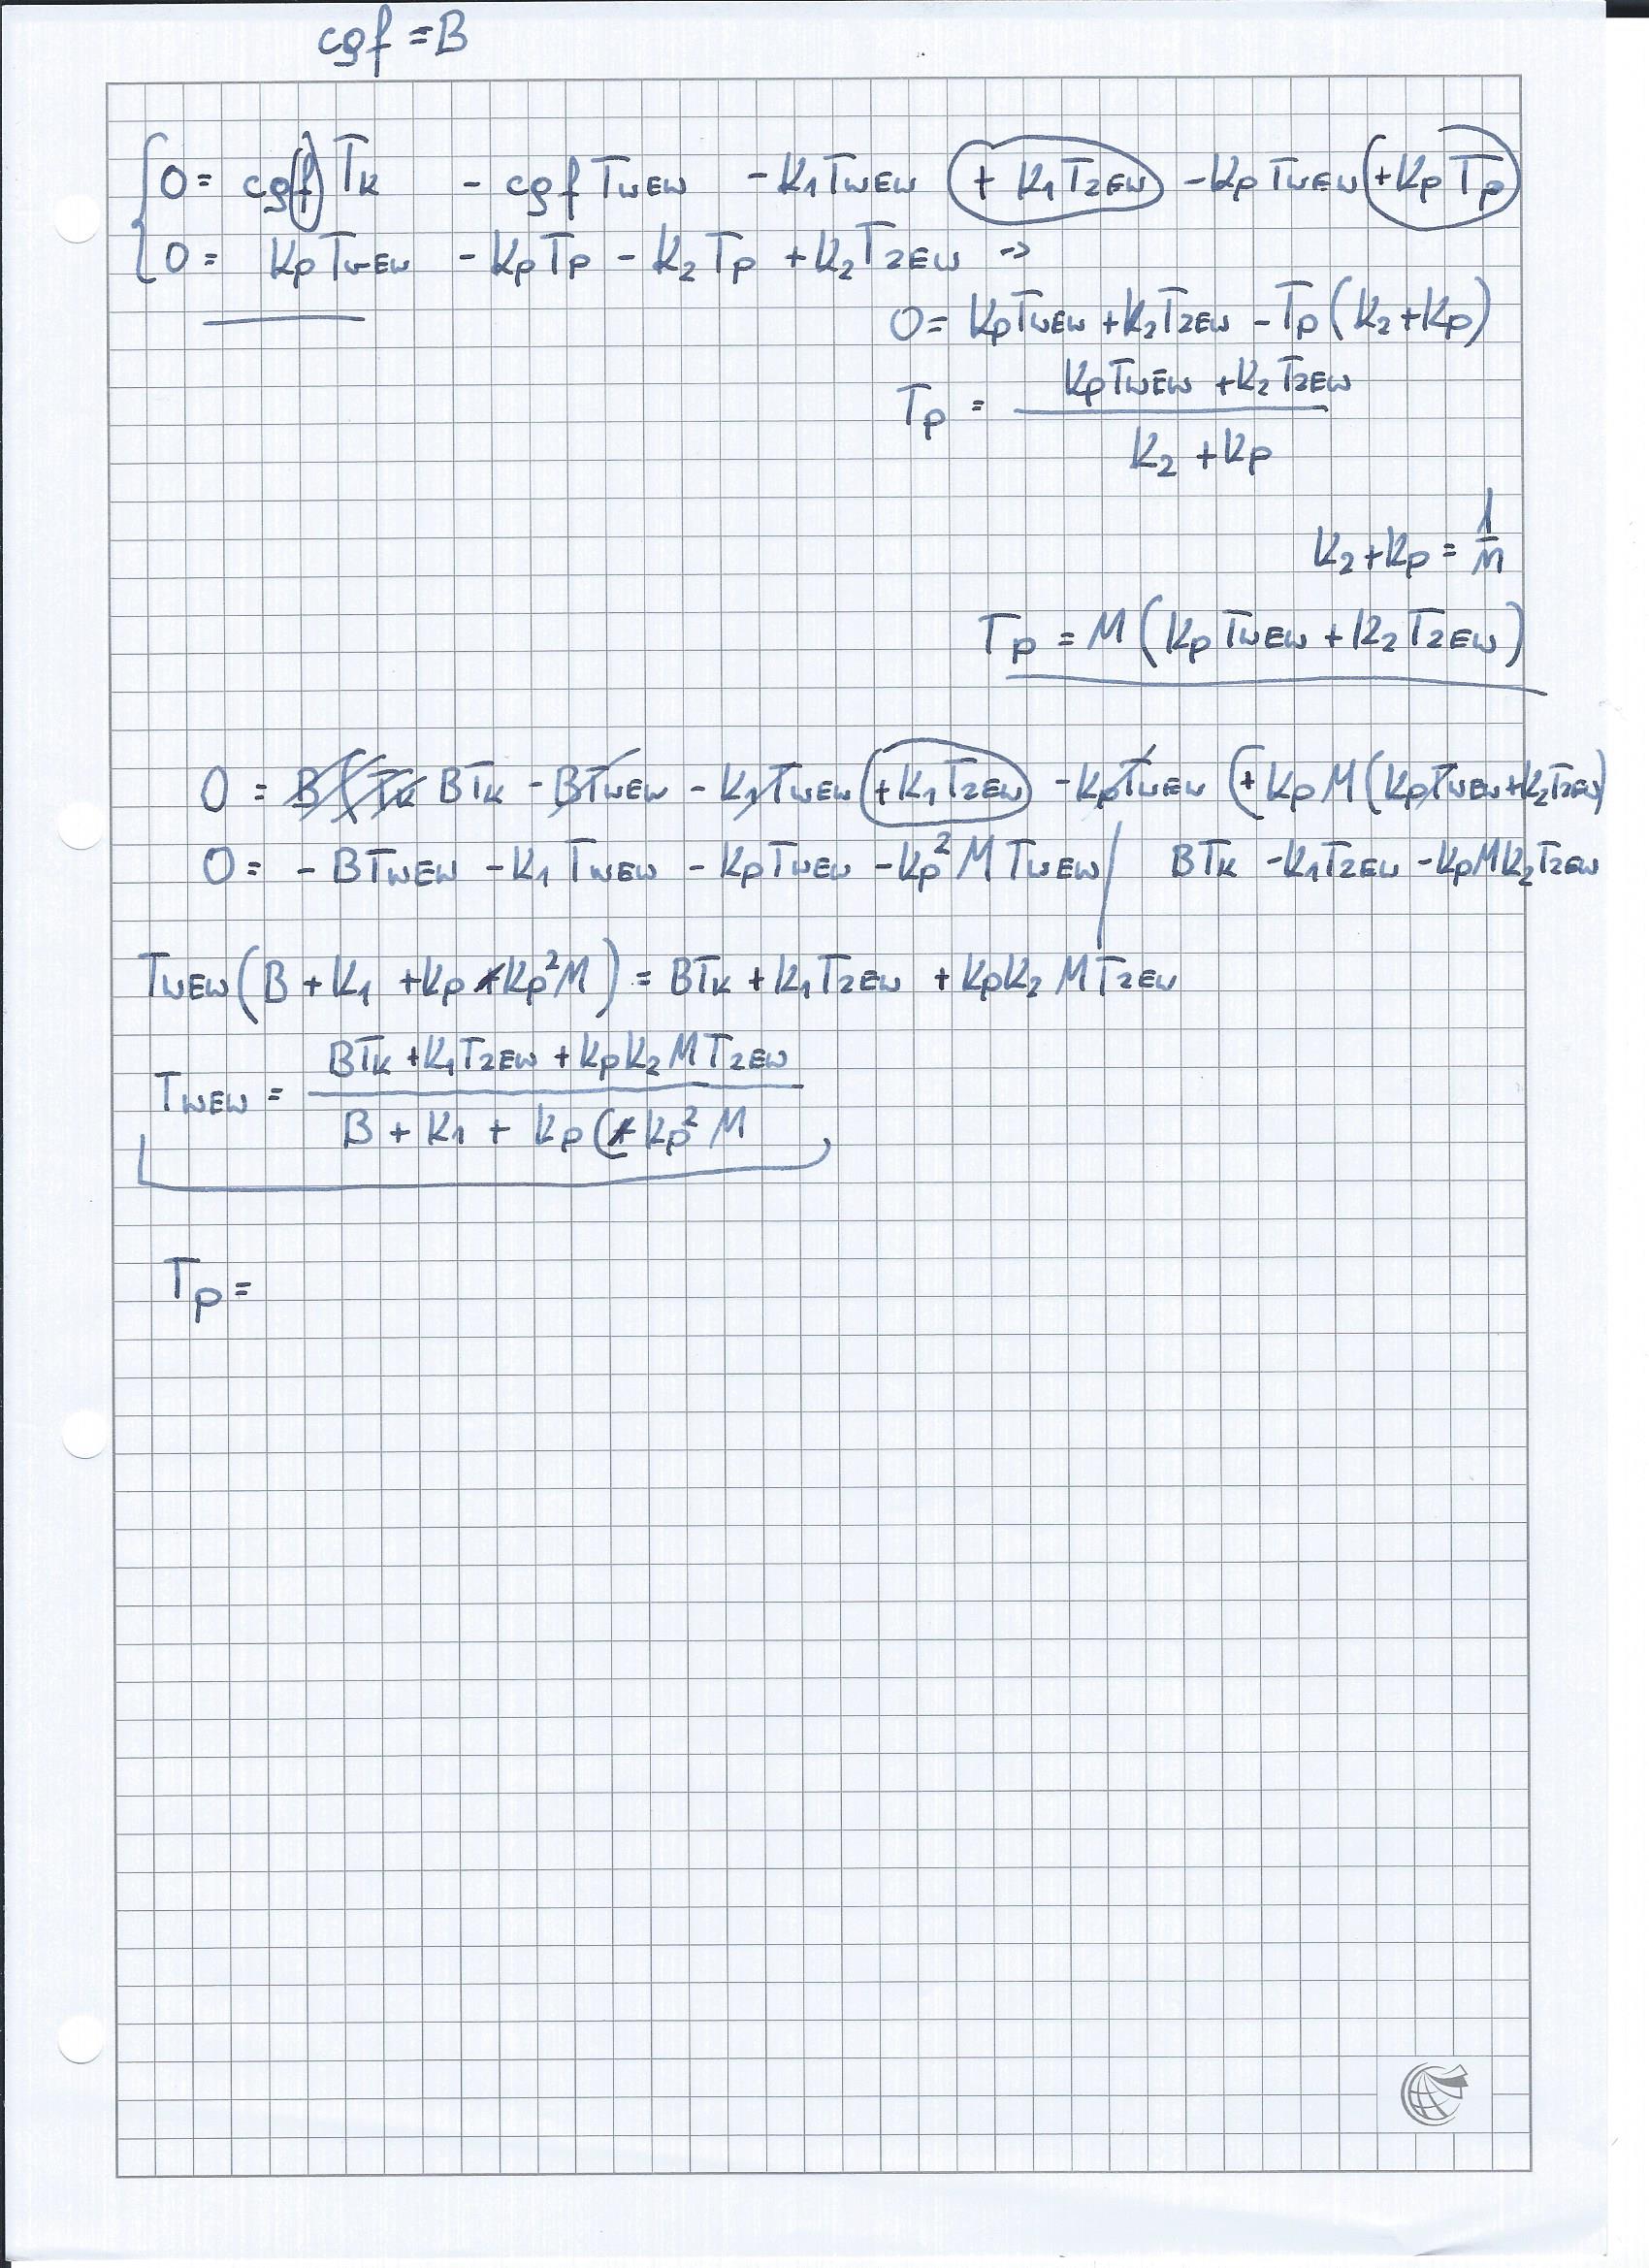 cgf = B
0 = cgf T_K - cgf T_WEW - K_1 T_WEW + K_1 T_ZEW - K_p T_WEW + K_p T_p
0 = K_p T_WEW - K_p T_p - K_2 T_p + K_2 T_ZEW ⇒
0 = K_p T_WEW + K_2 T_ZEW - T_p (K_2 + K_p)
T_p = (K_p T_WEW + K_2 T_ZEW) / (K_2 + K_p)
K_2 + K_p = 1/M
T_p = M (K_p T_WEW + K_2 T_ZEW)
0 = B (T_K BT_K - BT_WEW - K_1 T_WEW + K_1 T_ZEW - K_p T_WEW + K_p M (K_p T_WEW + K_2 T_ZEW)
0 = - BT_WEW - K_1 T_WEW - K_p T_WEW - K_p² M T_WEW / BT_K - K_1 T_ZEW - K_p M K_2 T_ZEW
T_WEW (B + K_1 + K_p - K_p² M) = BT_K + K_1 T_ZEW + K_p K_2 M T_ZEW
T_WEW = (BT_K + K_1 T_ZEW + K_p K_2 M T_ZEW) / (B + K_1 + K_p - K_p² M)
T_p =